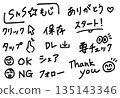 SNSもじ ありがとう♡
クリック 保存 スタート!
タップ DL 要チェック
OK シェア Thank you
NG フォロー
135143346